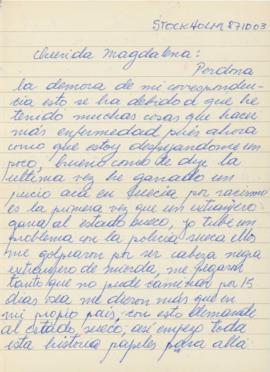 STOCKHOLM 871003
Querida Magdalena:
Perdona
la demora de mi corresponden
cia esto se ha debido a que he
tenido muchas cosas que hacer
más enfermedad, pués ahora
como que estoy despejandome un
poco, bueno como te dije la
ultima vez he ganado un
juicio acá en suecia por racismo
es la primera vez que un extranjero
gana al estado sueco, yo tube un
problema con la policia sueca ellos
me golpearon por ser cabeza negra
extranjero de mierda, me pegaron
tanto que no pude caminar por 15
dias osea me dieron más que en
mi propio pais, con esto demande
al estado sueco, así empezo toda
esta historia papeles para allá